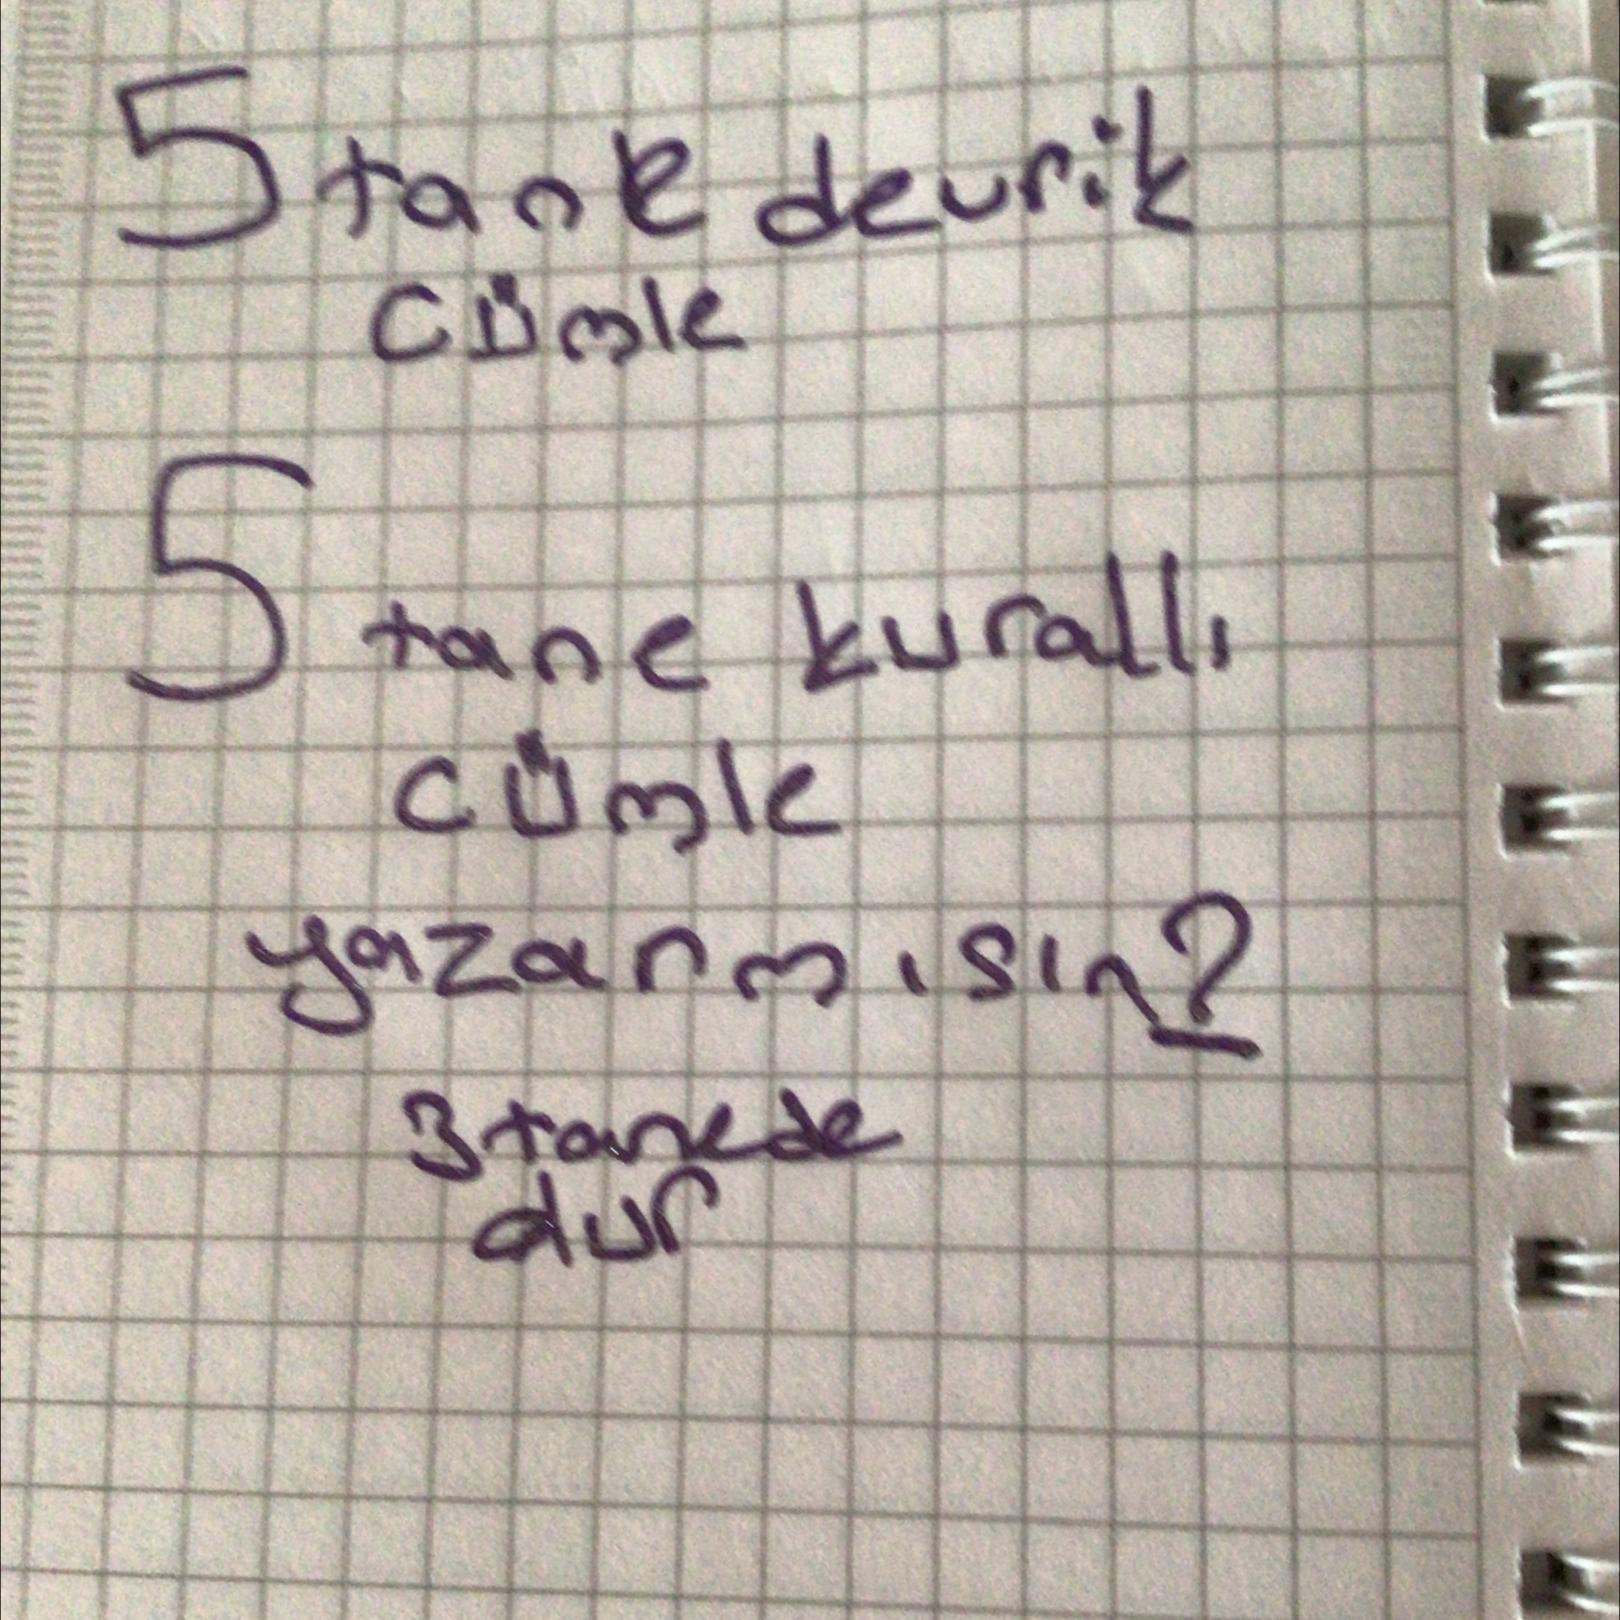 5 tane devrik
cümle
5 tane kurallı
cümle
yazarmısın?
3 tanede
dur